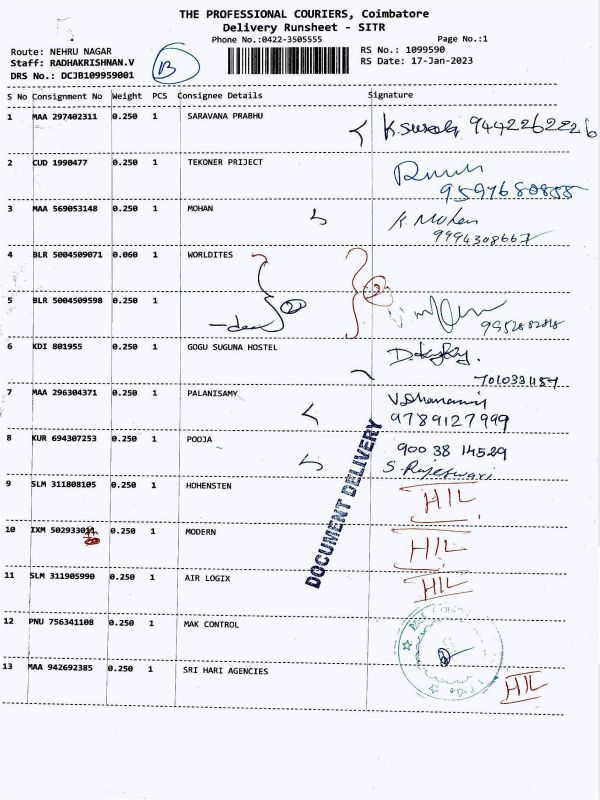 THE PROFESSIONAL COURIERS, Coimbatore
Delivery Runsheet - SITR
Phone No.:0422-3505555 Page No.:1
Route: NEHRU NAGAR RS No.: 1099590
Staff: RADHAKRISHNAN.V RS Date: 17-Jan-2023
DRS No.: DCJB109959001
B
S No Consignment No Weight PCS Consignee Details Signature
1 MAA 297402311 0.250 1 SARAVANA PRABHU 9442262226
2 CUD 1990477 0.250 1 TEKONER PRIJECT
9597680855
3 MAA 569053148 0.250 1 MOHAN K. Mohan
9994308667
4 BLR 5004509071 0.060 1 WORLDITES
5 BLR 5004509598 0.250 1
6 KDI 801955 0.250 1 GOGU SUGUNA HOSTEL
7010331154
7 MAA 296304371 0.250 1 PALANISAMY
9789127999
8 KUR 694307253 0.250 1 POOJA 900 38 14529
S. Rajeswari
9 SLM 311808105 0.250 1 HOHENSTEN HIL
10 IXM 502933011 0.250 1 MODERN HIL
11 SLM 311905990 0.250 1 AIR LOGIX HIL
12 PNU 756341108 0.250 1 MAK CONTROL
13 MAA 942692385 0.250 1 SRI HARI AGENCIES HIL
DOCUMENT DELIVERY